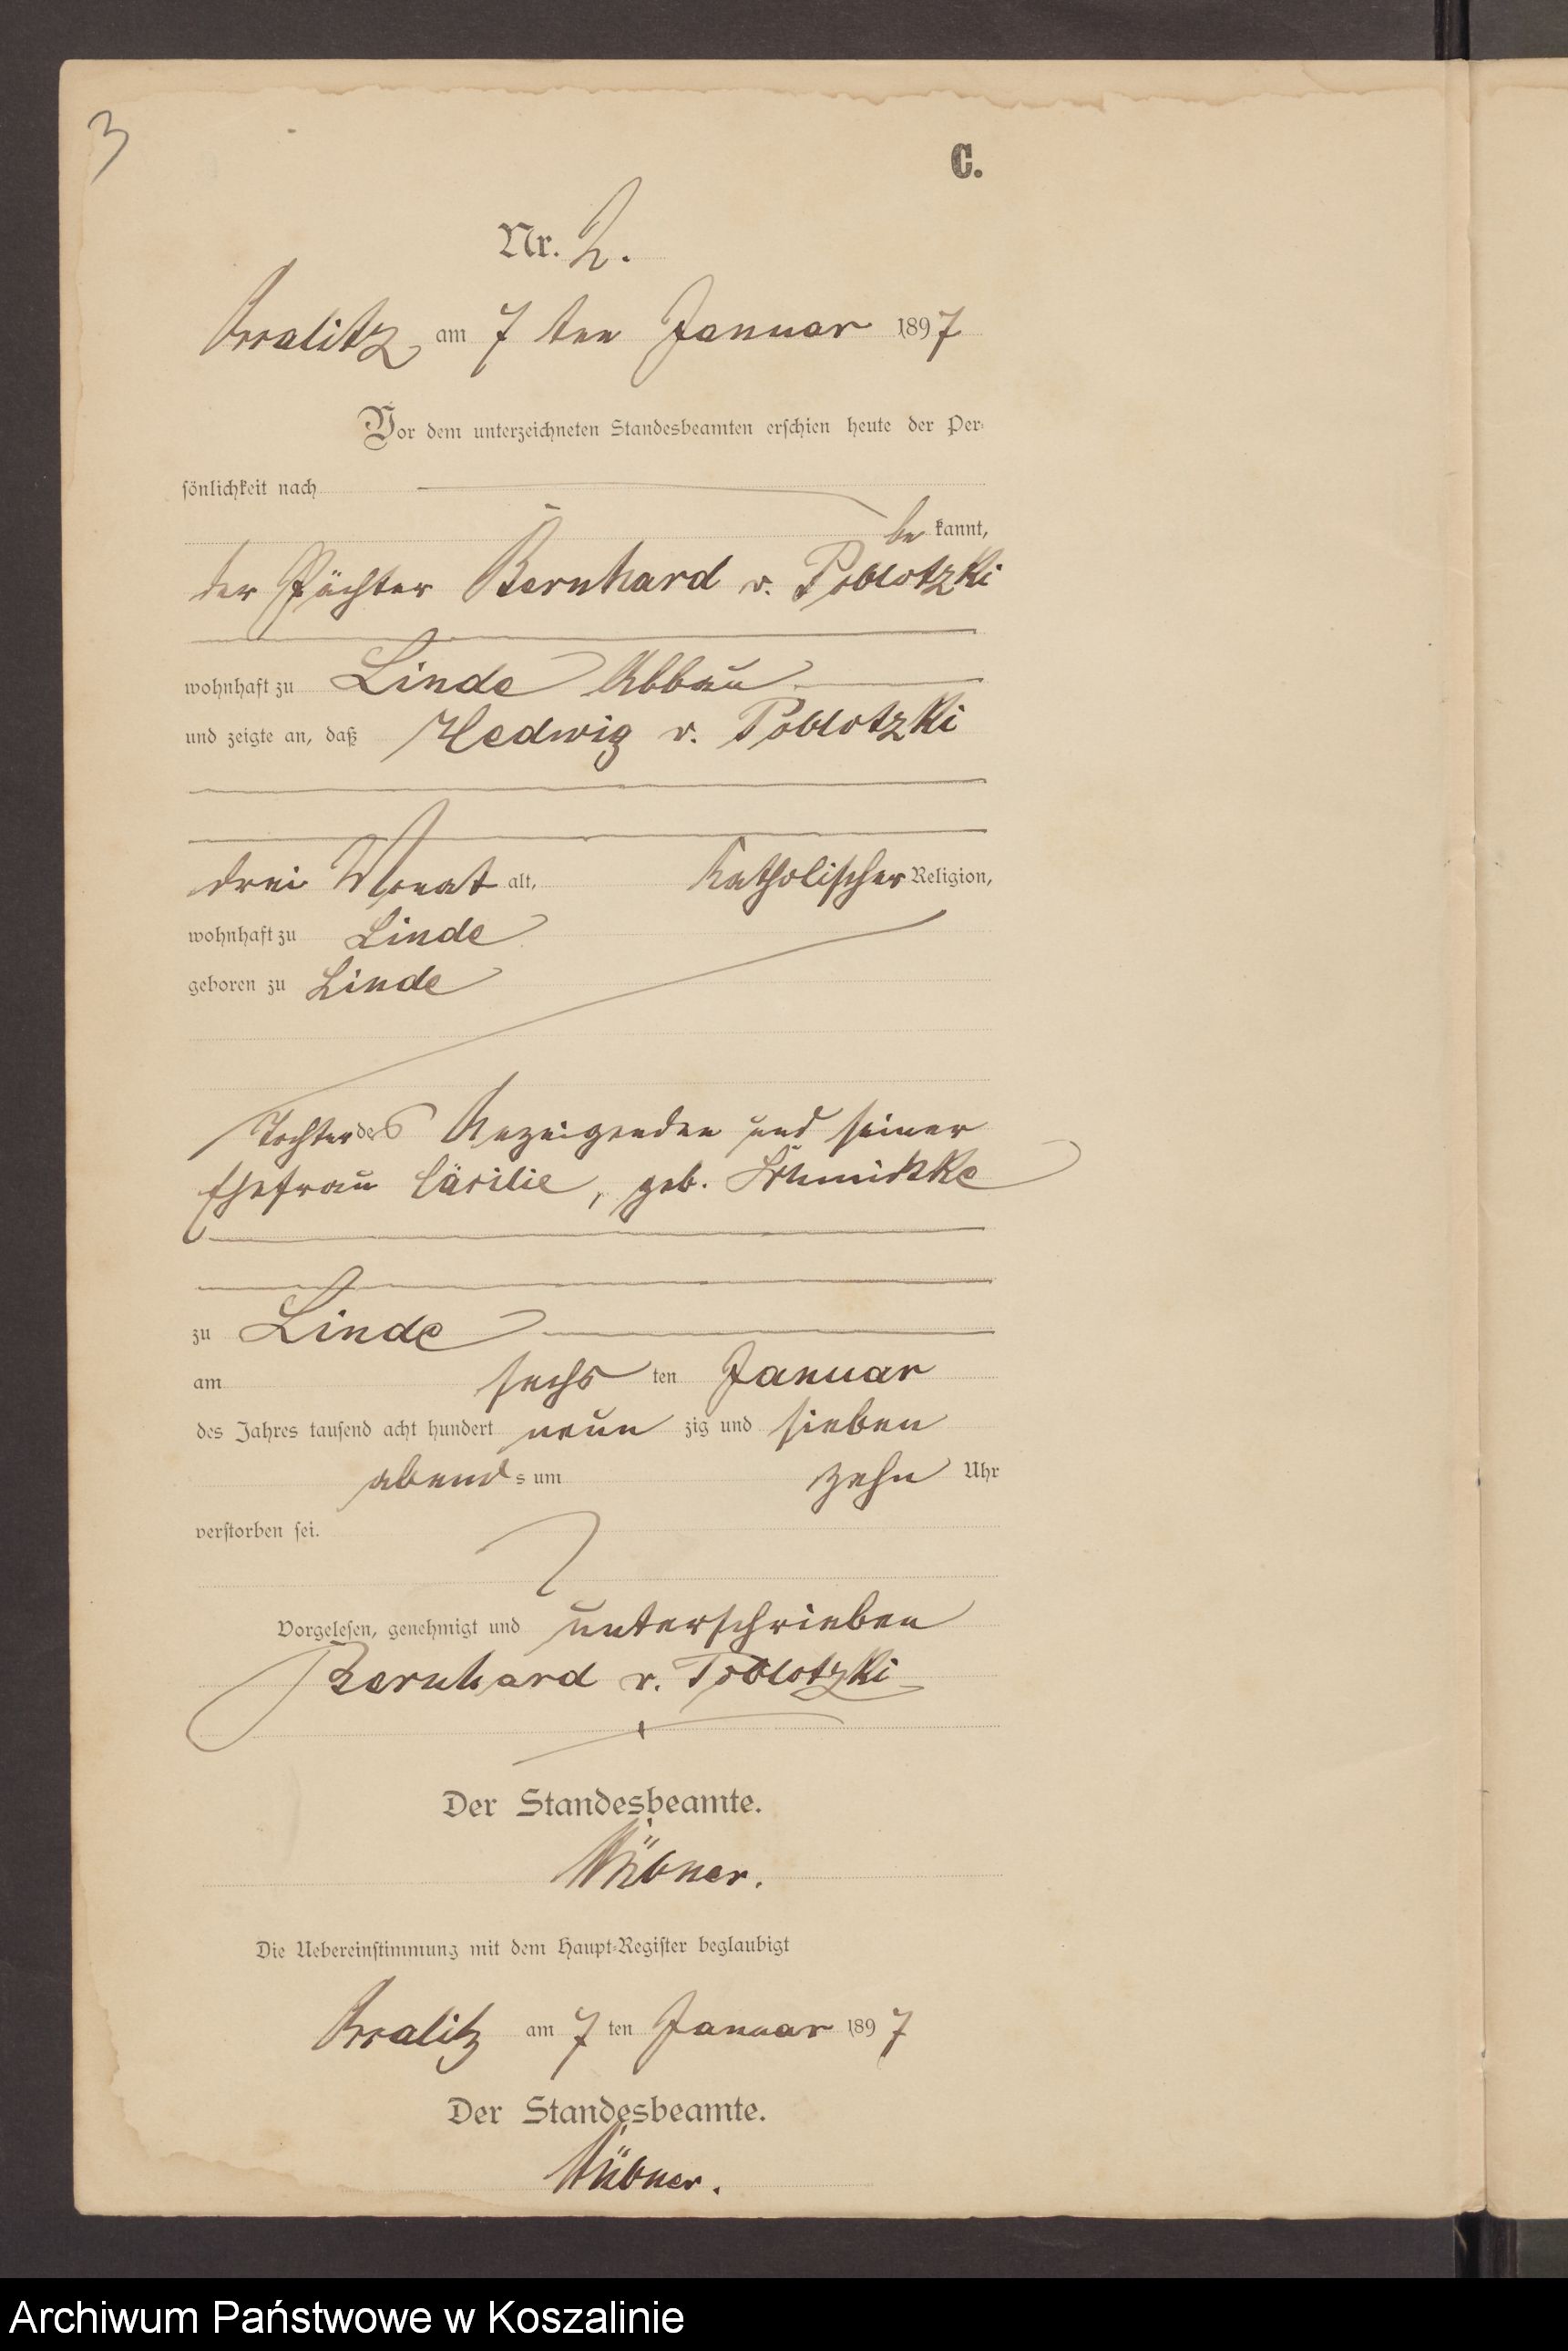 3
C.
Nr. 2.
am 7 ten Januar 1897
Vor dem unterzeichneten Standesbeamten erschien heute der Per-
sönlichkeit nach
be kannt,
der Pächter Bernhard v. Poblotzki
wohnhaft zu Linde Abbau
und zeigte an, daß Hedwig v. Poblotzki
drei Monat alt, katholischer Religion,
wohnhaft zu Linde
geboren zu Linde
Tochter des Anzeigenden und seiner
Ehefrau Cäcilie, geb.
zu Linde
am sechs ten Januar
des Jahres tausend acht hundert neun zig und sieben
abend s um zehn Uhr
verstorben sei.
Vorgelesen, genehmigt und unterschrieben
Bernhard v. Poblotzki
Der Standesbeamte.
Hübner.
Die Uebereinstimmung mit dem Haupt-Register beglaubigt
am 7 ten Januar 1897
Der Standesbeamte.
Hübner.
Archiwum Państwowe w Koszalinie